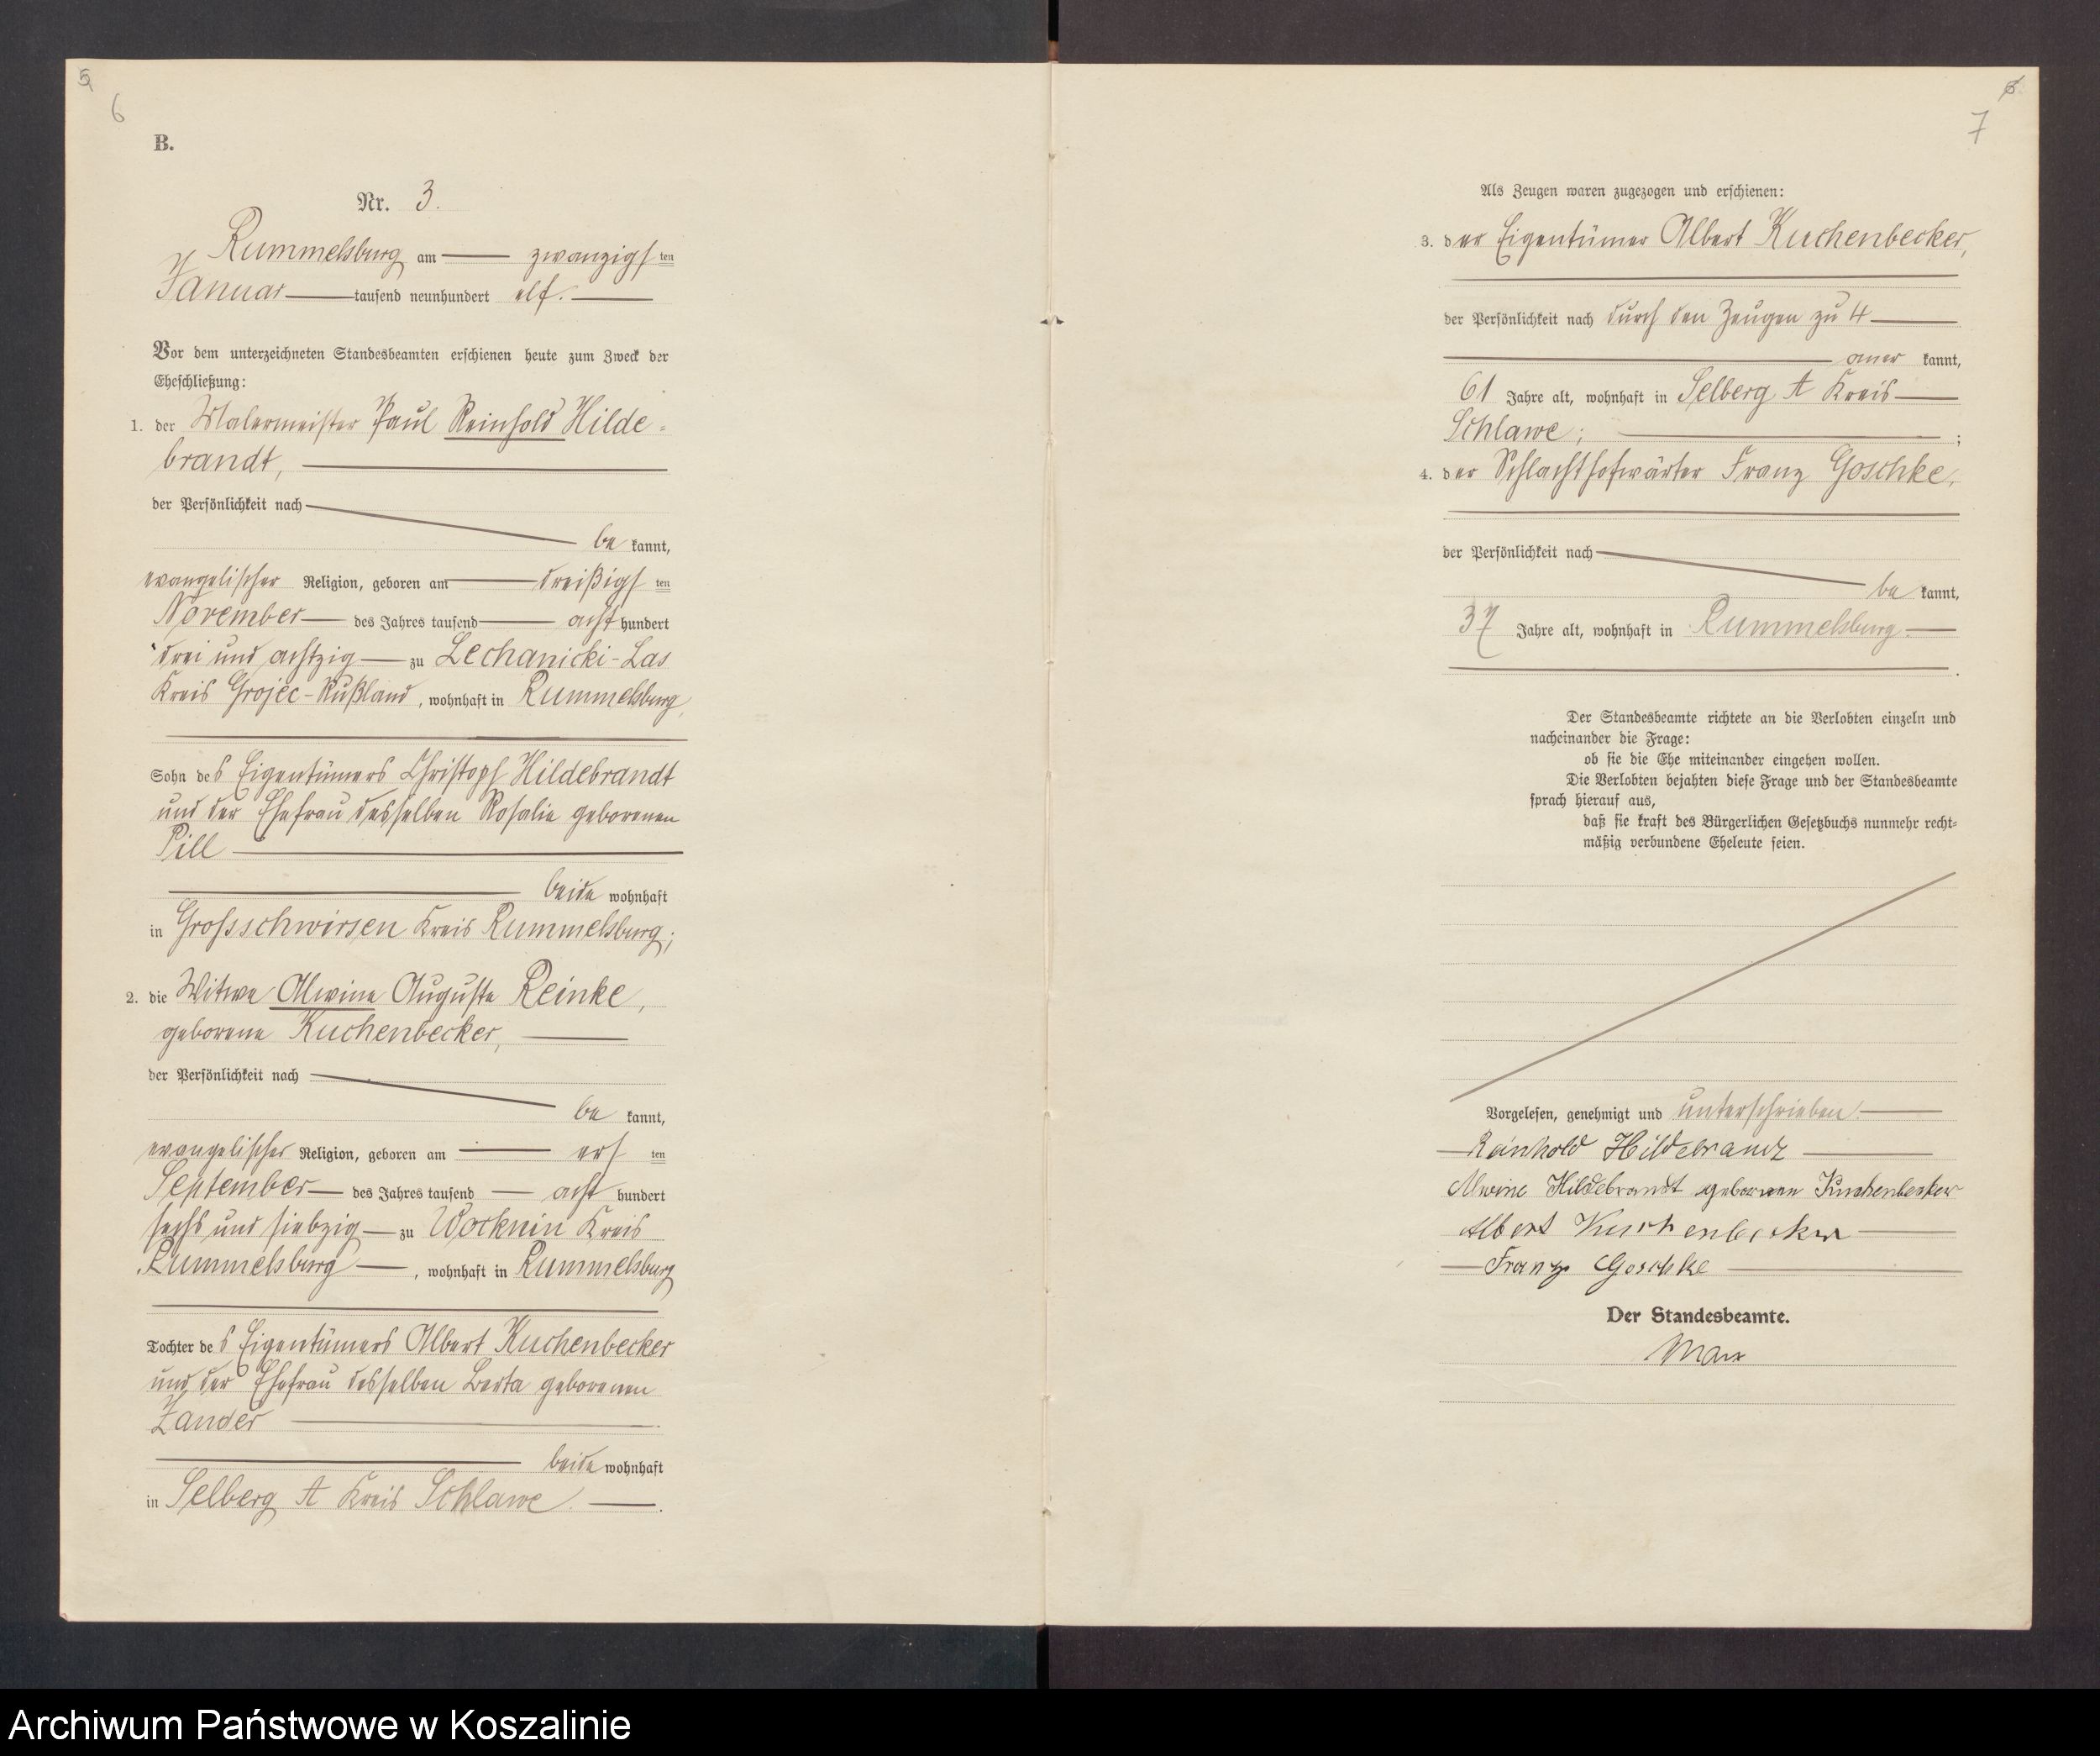 5
6
B.
Nr. 3.
Rummelsburg am zwanzigsten
Januar tausend neunhundert elf.
Vor dem unterzeichneten Standesbeamten erschienen heute zum Zweck der
Eheschließung:
1. der Malermeister Paul Reinhold Hilde-
brandt,
der Persönlichkeit nach
be kannt,
evangelischer Religion, geboren am dreißigsten
November des Jahres tausend acht hundert
drei und achtzig zu Lechanicki-Las
Kreis Grojec-Rußland, wohnhaft in Rummelsburg,
Sohn des Eigentümers Christoph Hildebrandt
und der Ehefrau desselben Rosalie geborenen
Pill
beide wohnhaft
in Grossschwirsen Kreis Rummelsburg;
2. die Witwe Alwine Auguste Reinke,
geborene Kuchenbecker,
der Persönlichkeit nach
be kannt,
evangelischer Religion, geboren am ersten
September des Jahres tausend acht hundert
sechs und siebzig zu Wocknin Kreis
Rummelsburg, wohnhaft in Rummelsburg
Tochter des Eigentümers Albert Kuchenbecker
und der Ehefrau desselben Berta geborenen
Zander
beide wohnhaft
in Selberg A Kreis Schlawe.
6
7
Als Zeugen waren zugezogen und erschienen:
3. der Eigentümer Albert Kuchenbecker,
der Persönlichkeit nach durch den Zeugen zu 4
aner kannt,
61 Jahre alt, wohnhaft in Selberg A Kreis
Schlawe; ;
4. der Schlachthofwärter Franz Goschke,
der Persönlichkeit nach
be kannt,
37 Jahre alt, wohnhaft in Rummelsburg.
Der Standesbeamte richtete an die Verlobten einzeln und
nacheinander die Frage:
ob sie die Ehe miteinander eingehen wollen.
Die Verlobten bejahten diese Frage und der Standesbeamte
sprach hierauf aus,
daß sie kraft des Bürgerlichen Gesetzbuchs nunmehr recht-
mäßig verbundene Eheleute seien.
Vorgelesen, genehmigt und unterschrieben.
Reinhold Hildebrandt
Alwine Hildebrandt geborenen Kuchenbecker
Albert Kuchenbecker
Franz Goschke
Der Standesbeamte.
Marx
Archiwum Państwowe w Koszalinie